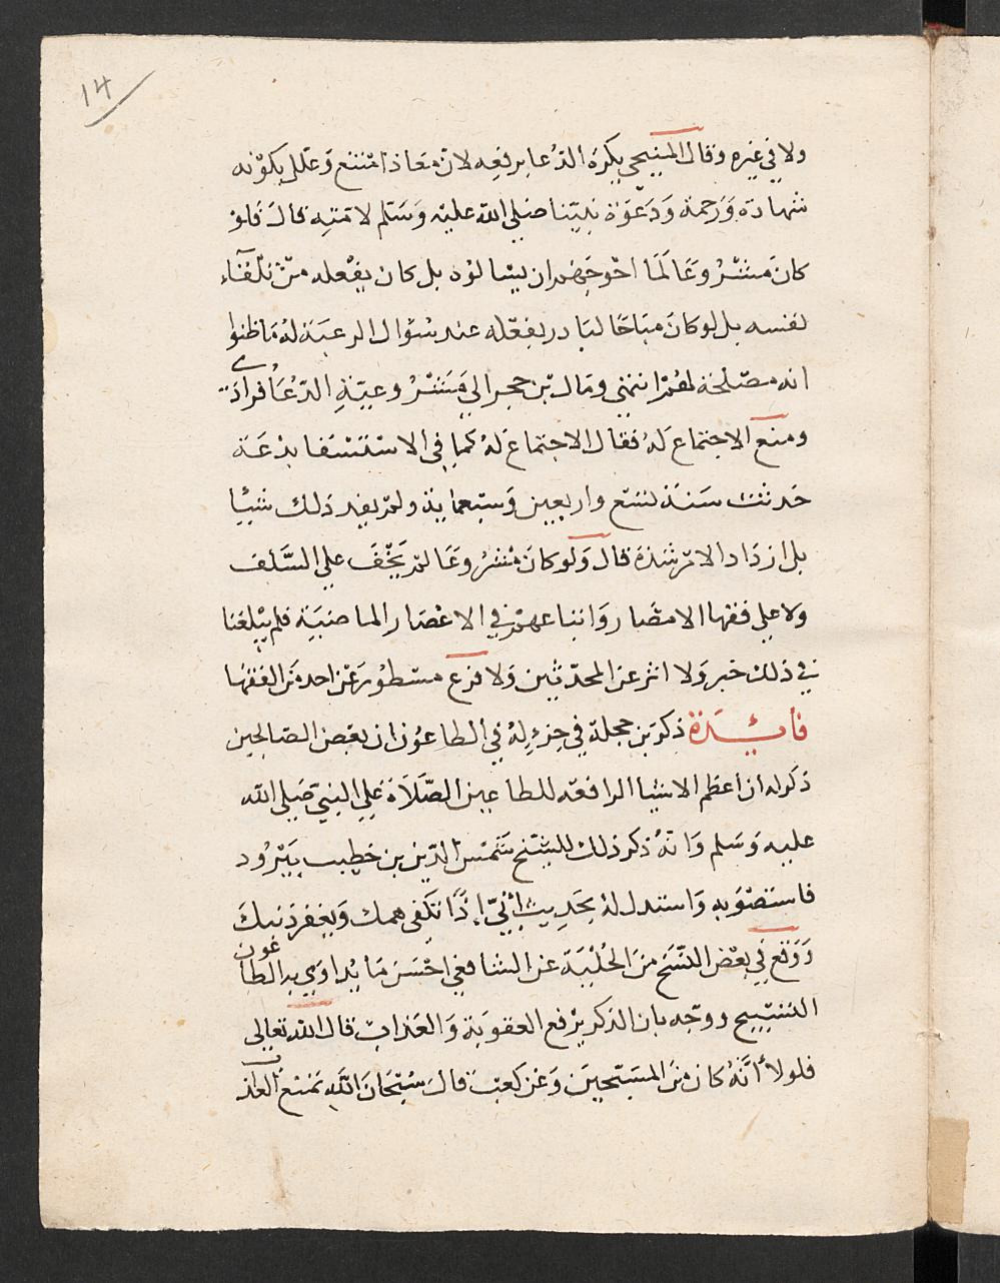 14
ولا في غيره وقال المنبجي يكره الدعا برفعه لان معاذا امتنع وعلل بكونه
شهادة ورحمة ودعوة نبينا صلي الله عليه وسلم لامته قال فلو
كان مشروعا لما احوجهم ان يسالوه بل كان يفعله من تلقآء
نفسه بل لو كان مباحا لبادر بفعله عند سؤال الرعية له ما ظنوا
انه مصلحة لهم انتهي ومال بن حجر الي مشروعية الدعا فرادي
ومنع الاجتماع له فقال الاجتماع له كما في الاستسقا بدعة
حدثت سنة تسع واربعين وسبعماية ولم يفد ذلك شيئا
بل ازداد الامر شدة قال ولو كان مشروعا لم يخف علي السلف
ولا علي فقها الامصار واتباعهم في الاعصار الماضية فلم يبلغنا
في ذلك خبر ولا اثر عن المحدثين ولا فرع مسطور عن احد من الفقها
فائدة ذكر بن حجلة في جزء له في الطاعون ان بعض الصالحين
ذكر له ان اعظم الاشيا الرافعه للطاعين الصلاة علي النبي صلي الله
عليه وسلم وانه ذكر ذلك للشيخ شمس الدين بن خطيب يبرود
فاستصوبه واستدل له بحديث أبي إذا تكفي همك ويغفر ذنبك
ووقع في بعض النسخ من الحلية عن الشافعي احسن ما يداوي به الطاعون
التسبيح ووجه بان الذكر يرفع العقوبة والعذاب قال الله تعالي
فلولا أنه كان من المسبحين وعن كعب قال سبحان الله تمنع العذاب